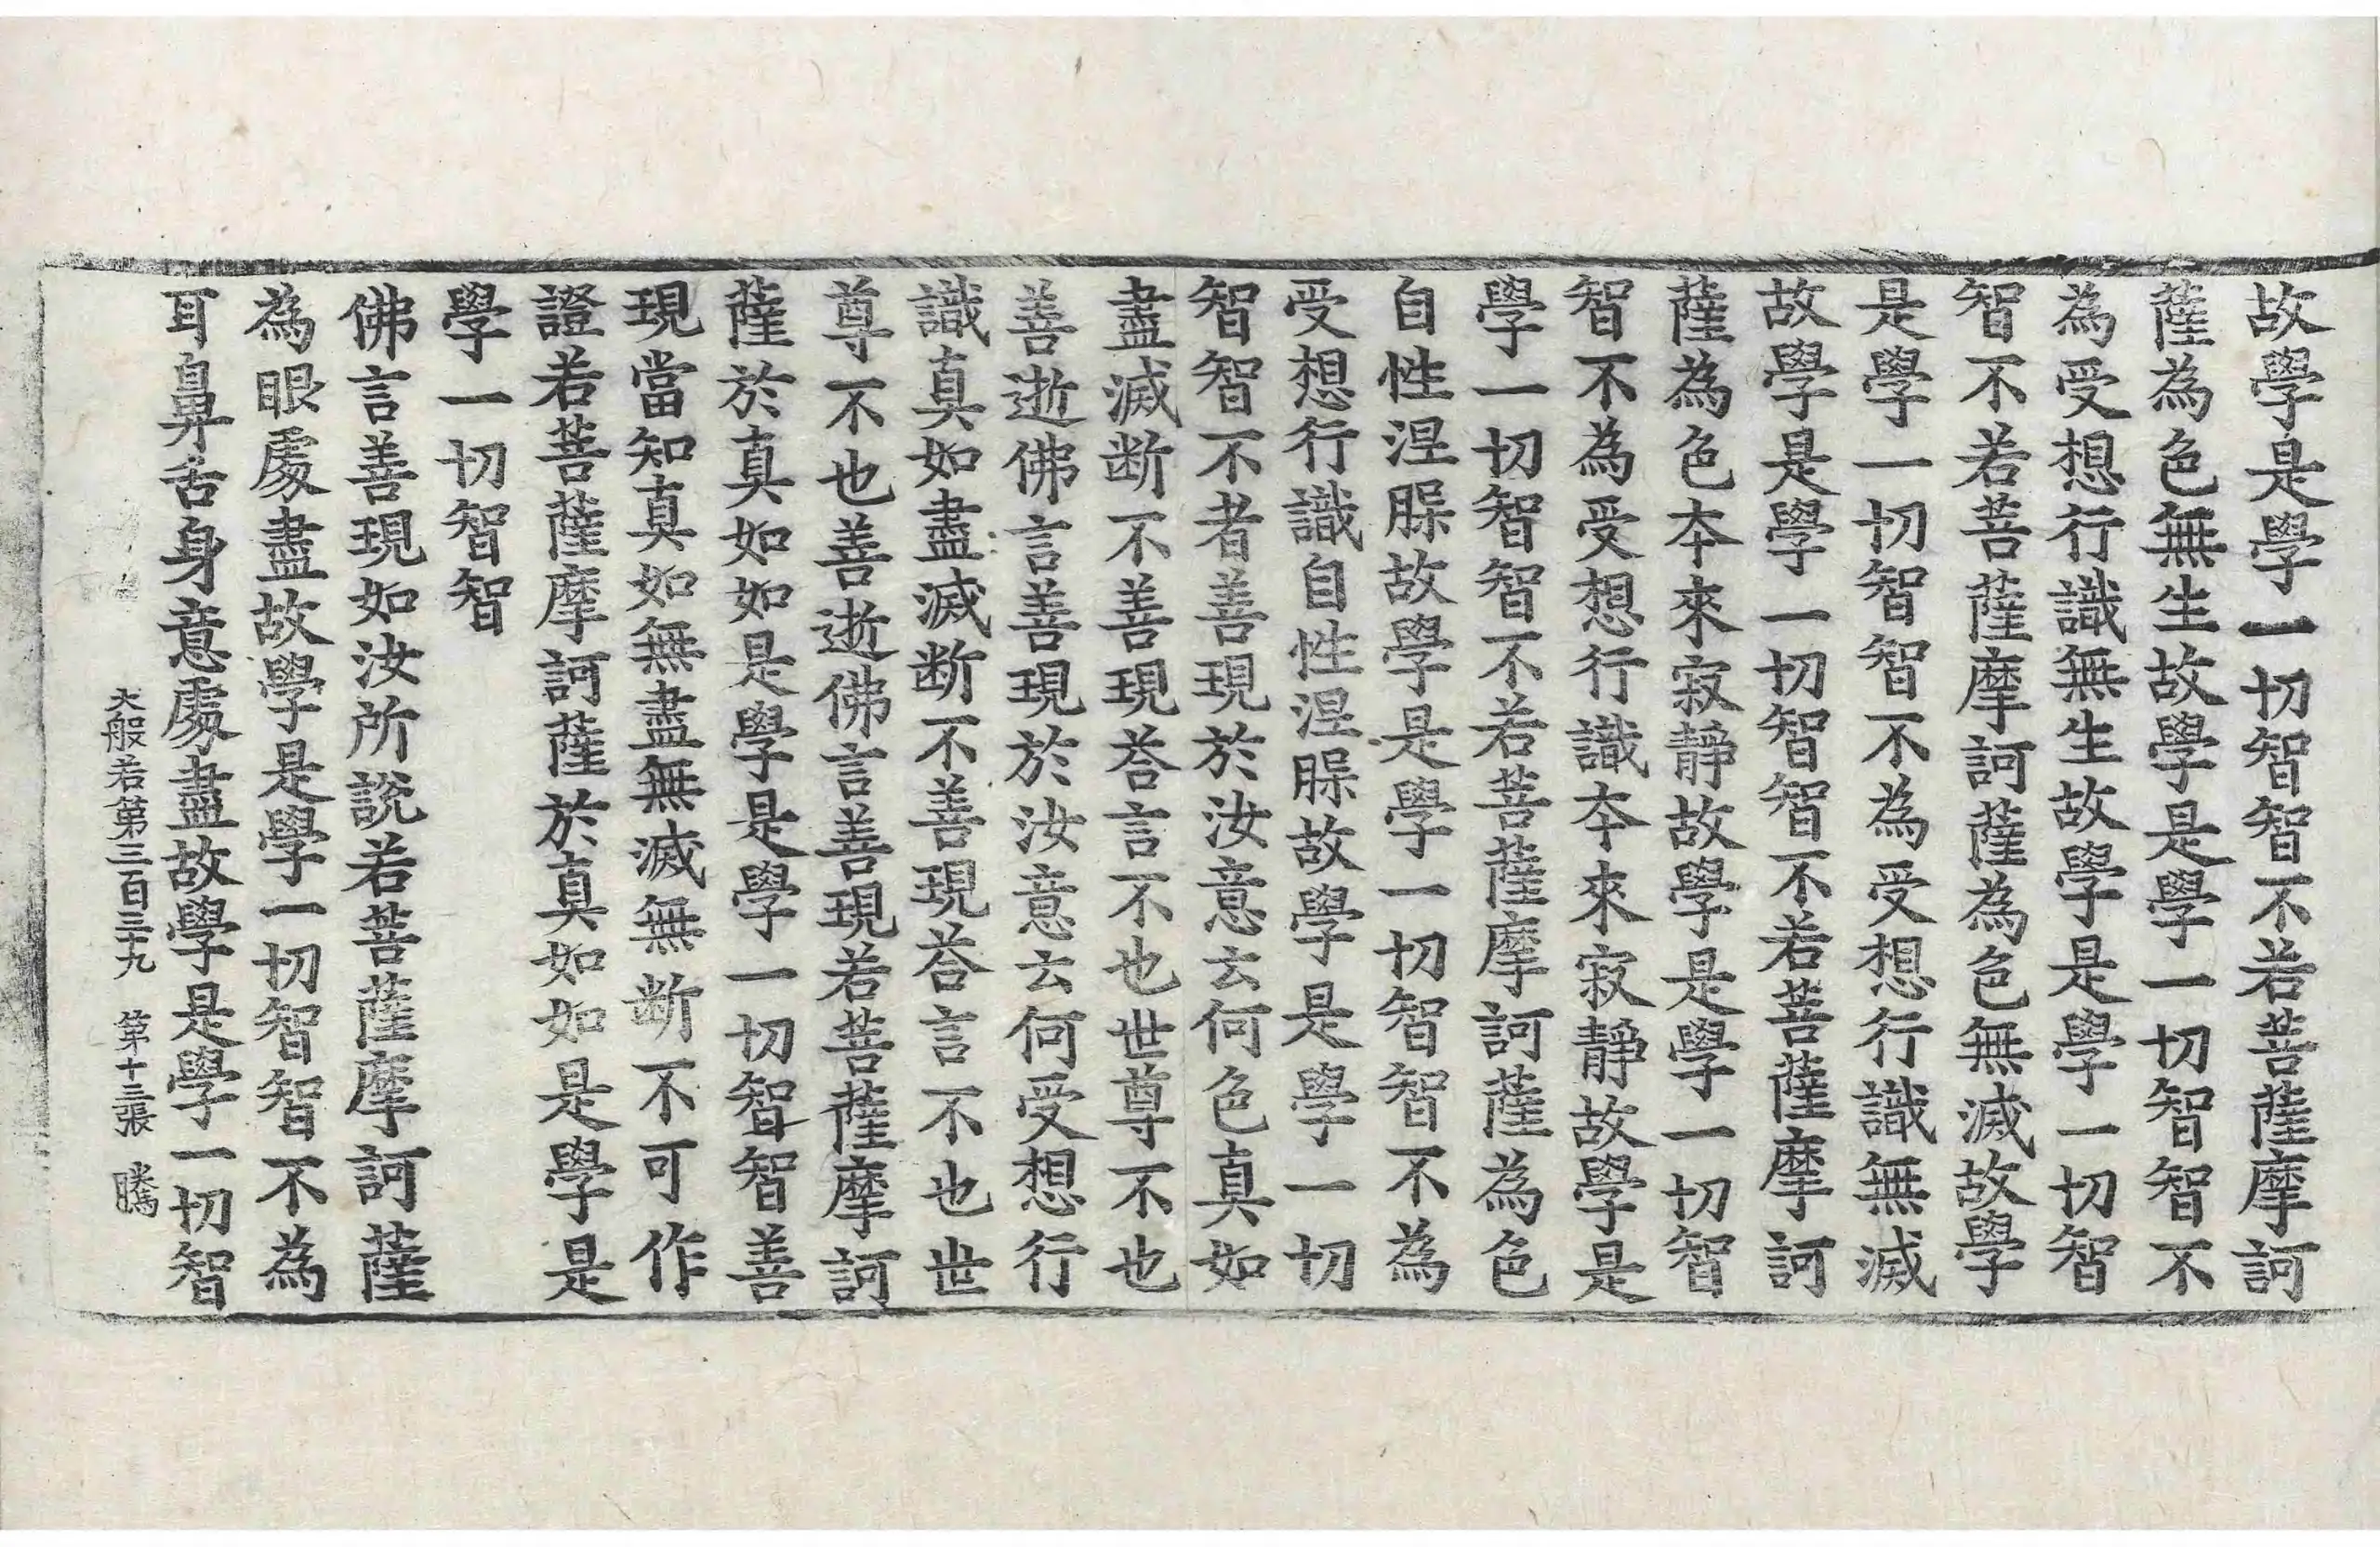 故學是學一切智智不若菩薩摩訶
薩為色無生故學是學一切智智不
為受想行識無生故學是學一切智
智不若菩薩摩訶薩為色無滅故學
是學一切智智不為受想行識無滅
故學是學一切智智不若菩薩摩訶
薩為色夲來寂靜故學是學一切智
智不為受想行識夲來寂靜故學是
學一切智智不若菩薩摩訶薩為色
自性涅䏶故學是學一切智智不為
受想行識自性涅䏶故學是學一切
智智不者善現於汝意云何色真如
盡滅断不善現荅言不也世尊不也
善逝佛言善現於汝意云何受想行
識真如盡滅断不善現荅言不也世
尊不也善逝佛言善現若菩薩摩訶
薩於真如如是學是學一切智智善
現當知真如無盡無滅無断不可作
證若菩薩摩訶薩於真如如是學是
學一切智智
佛言善現如汝所說若菩薩摩訶薩
為眼處盡故學是學一切智智不為
耳鼻舌身意處盡故學是學一切智
大般若第三百三十九　第十三張　騰